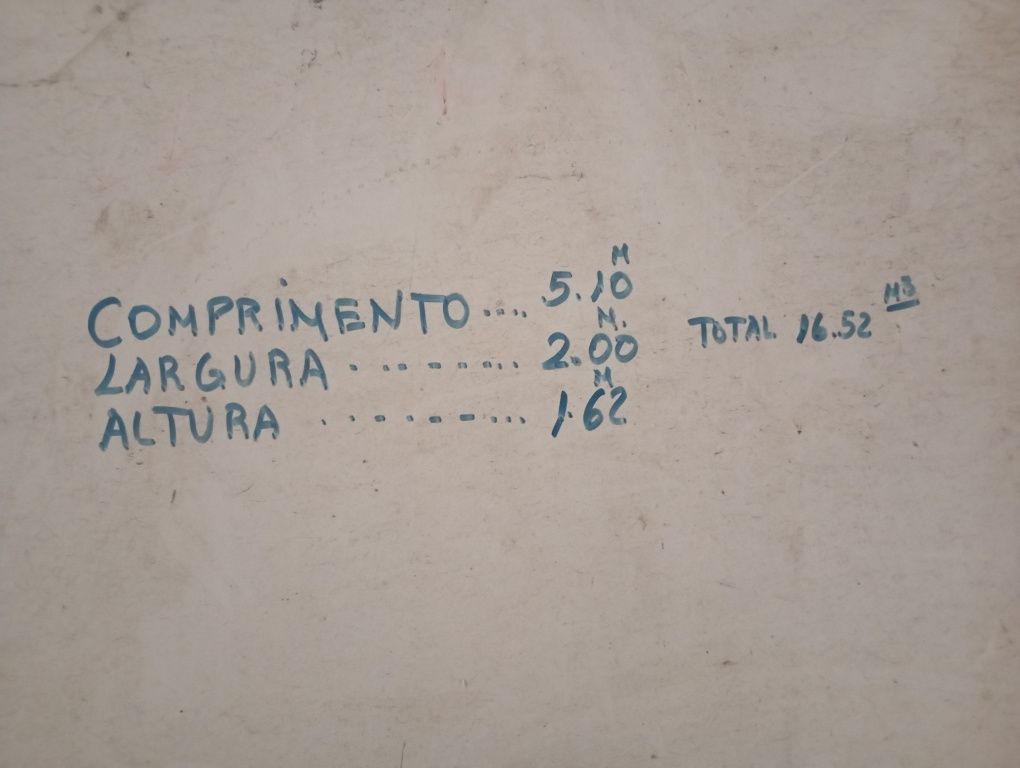 COMPRIMENTO.... 5.10 M
LARGURA ........ 2.00 M.
ALTURA ........ 1.62 M
TOTAL 16.52 M3